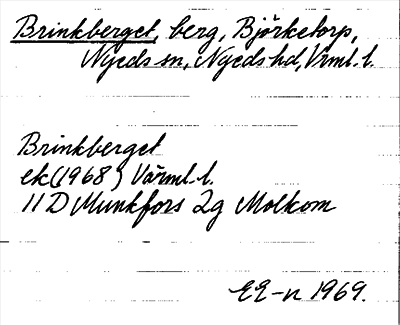 Brinkberget, berg, Björketorp,
Nyeds sn, Nyeds hd, Vrml. l.
Brinkberget
ek (1968) Värml. l.
11 D Munkfors 2g Molkom
EE-n 1969.